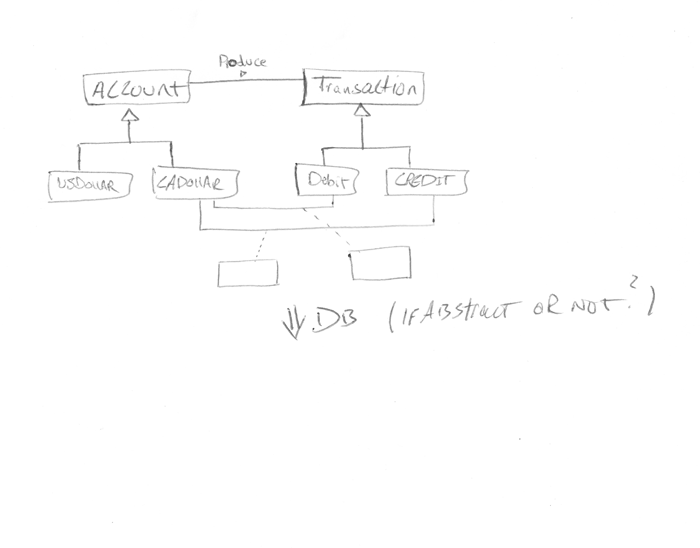 Produce
Account
Transaction
USDollar
CADollar
Debit
CREDIT
DB (IF ABStract OR NOT?)